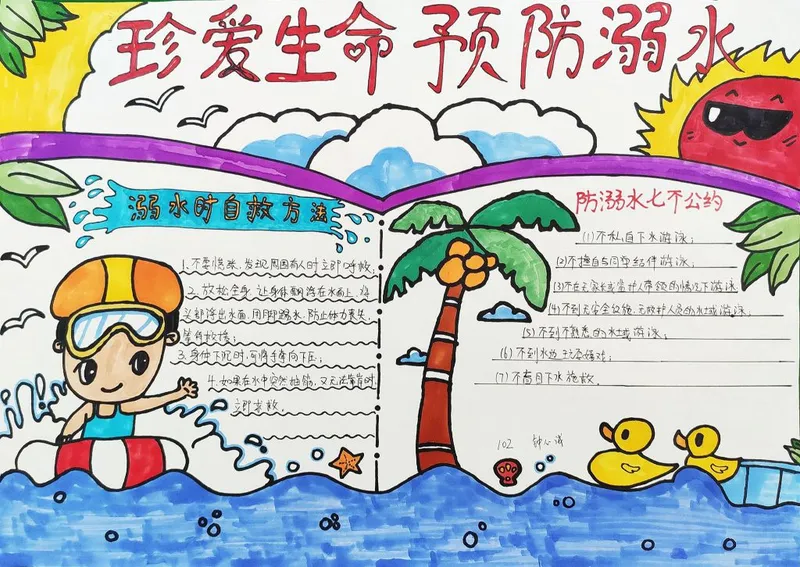 珍爱生命 预防溺水
溺水时自救方法
1.不要慌张,发现周围有人时立即呼救;
2.放松全身,让身体飘浮在水面上,将
头部浮出水面,用脚踢水,防止体力丧失,
等待救援;
3.身体下沉时,可将手掌向下压;
4.如果在水中突然抽筋,又无法靠岸时,
立即求救.
防溺水七不公约
(1)不私自下水游泳;
(2)不擅自与同学结伴游泳;
(3)不在无家长或监护人带领的情况下游泳;
(4)不到无安全设施,无救护人员的水域游泳;
(5)不到不熟悉的水域游泳;
(6)不到水边玩耍嬉戏;
(7)不盲目下水施救.
102 钟心